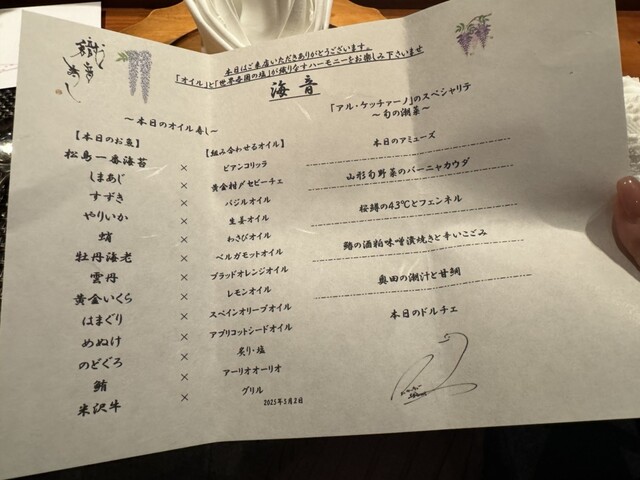 本日はご来店いただきありがとうございます。
「オイル」と「世界各国の塩」が織りなすハーモニーをお楽しみ下さいませ
海音
～本日のオイル寿し～
【本日のお魚】 【組み合わせるオイル】
松島一番海苔 × ビアンコリッラ
しまあじ × 黄金柑〆セビーチェ
すずき × バジルオイル
やりいか × 生姜オイル
蛸 × わさびオイル
牡丹海老 × ベルガモットオイル
雲丹 × ブラッドオレンジオイル
黄金いくら × レモンオイル
はまぐり × スペインオリーブオイル
めぬけ × アプリコットシードオイル
のどぐろ × 炙り・塩
鮪 × アーリオオーリオ
米沢牛 × グリル
2025年3月2日
「アル・ケッチァーノ」のスペシャリテ
～旬の潮菜～
本日のアミューズ
山形旬野菜のバーニャカウダ
桜鱒の43℃とフェンネル
鰆の酒粕味噌漬焼きと辛いこごみ
奥田の潮汁と甘鯛
本日のドルチェ